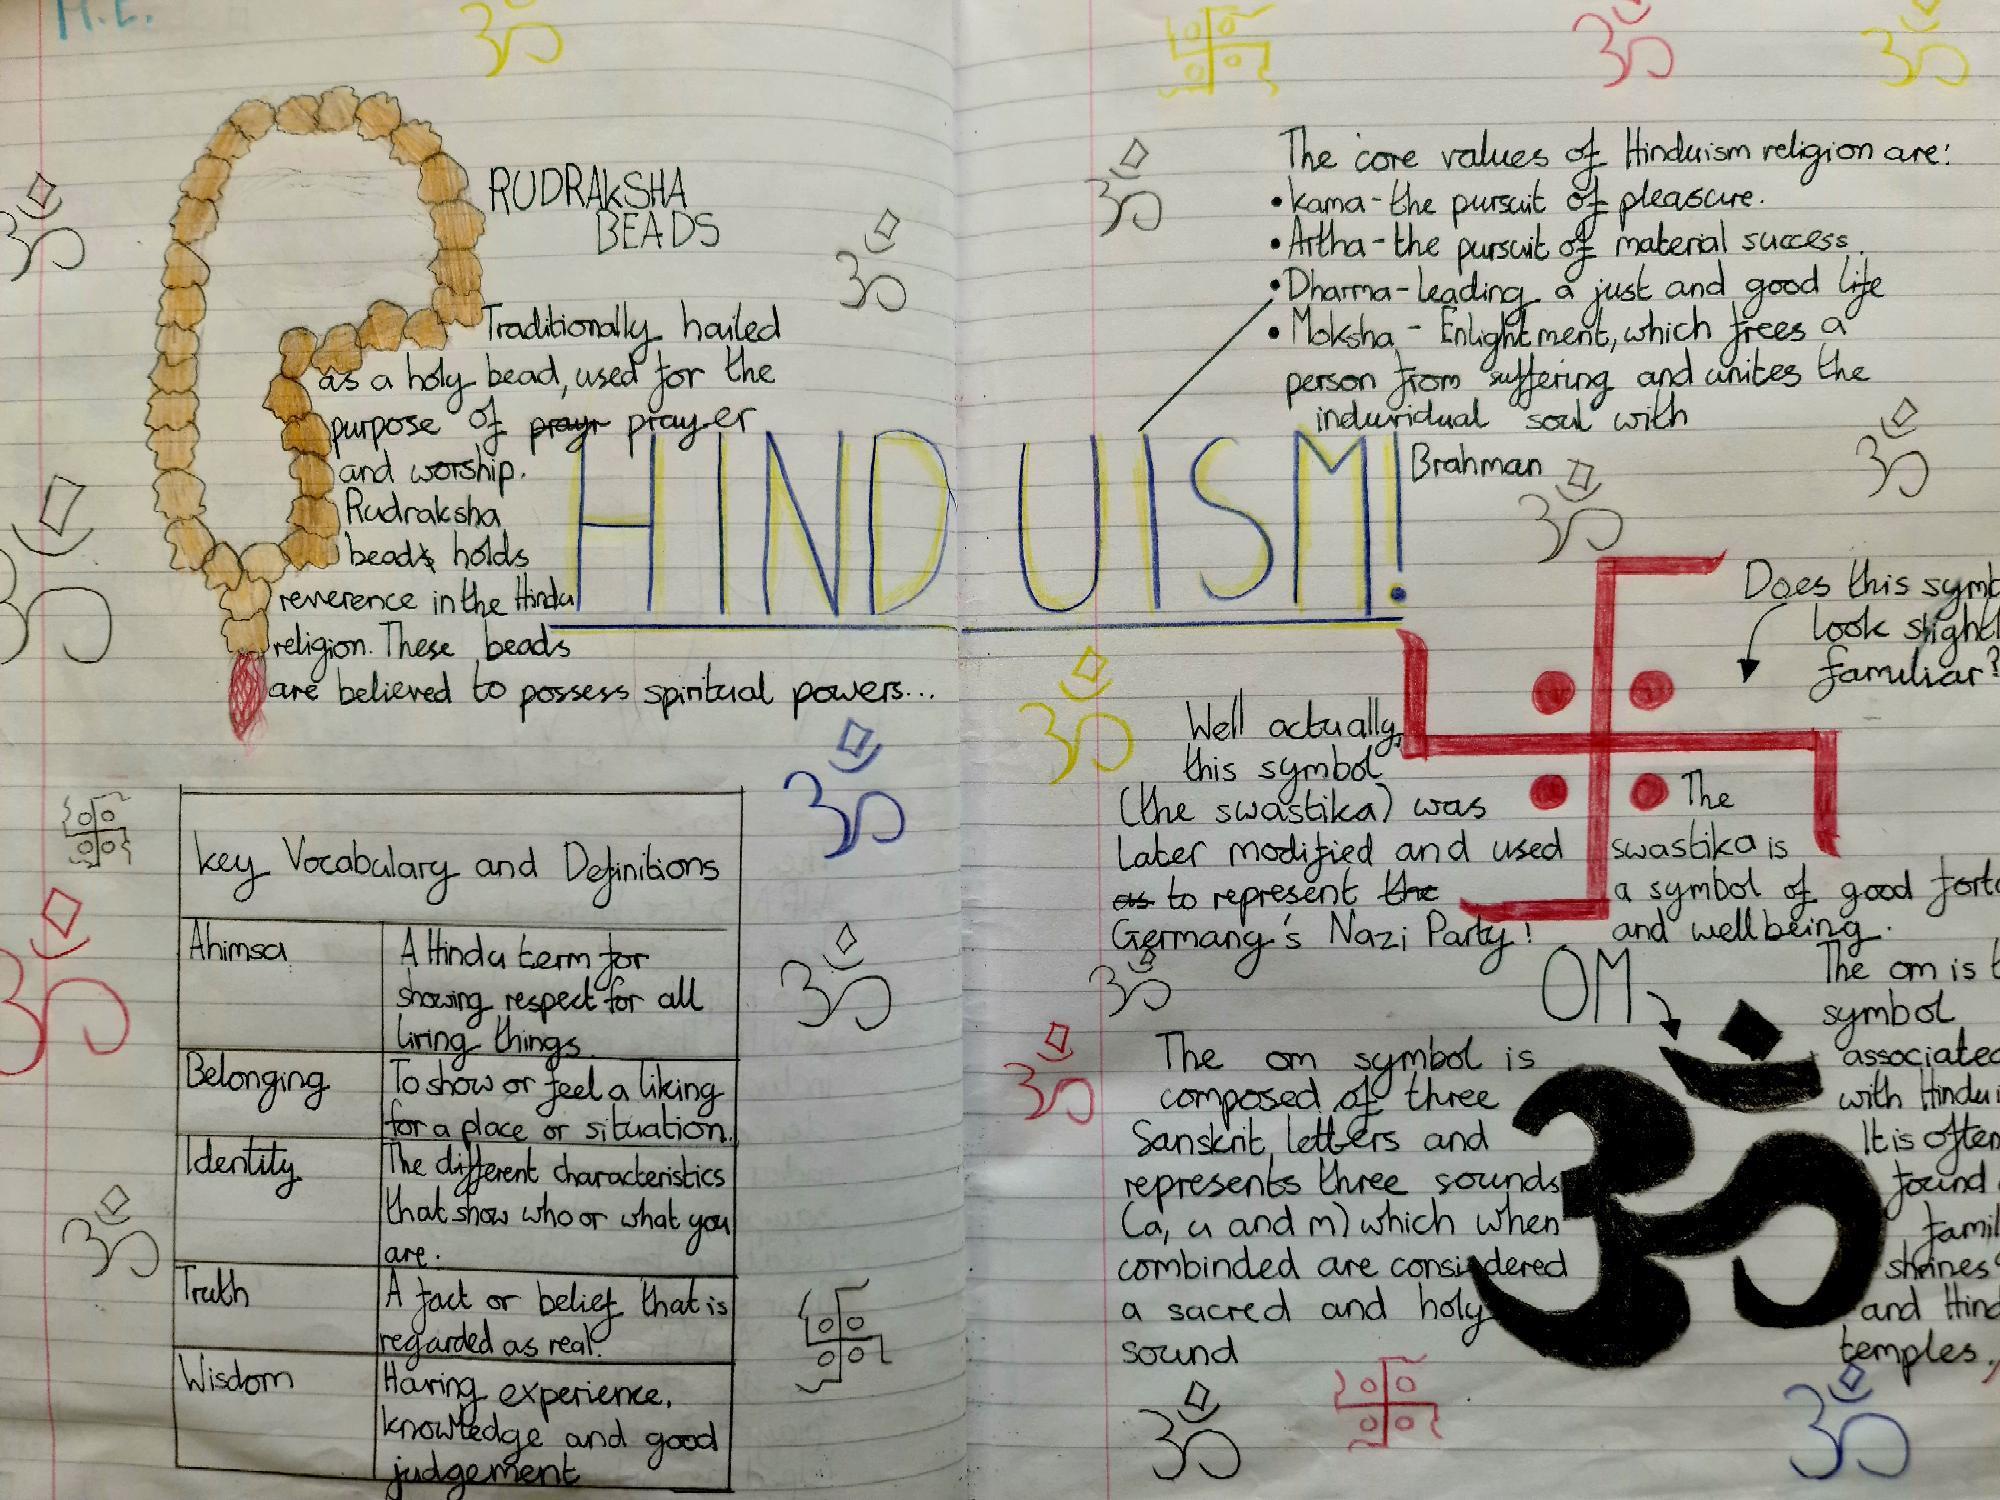 H.L.
RUDRAKSHA
BEADS
Traditionally hailed
as a holy bead, used for the
purpose of prayr prayer
and worship.
Rudraksha
beads holds
reverence in the Hindu
religion. These beads
are believed to possess spiritual powers...
HINDUISM!
The core values of Hinduism religion are:
• Kama - the pursuit of pleasure.
• Artha - the pursuit of material success.
• Dharma - leading a just and good life
• Moksha - Enlightment, which frees a
person from suffering and unites the
induvidual soul with
Brahman
Does this symb
look slightl
familiar?
Well actually,
this symbol
(the swastika) was
later modified and used
as to represent the
Germany's Nazi Party!
The
swastika is
a symbol of good fort
and wellbeing.
OM
The om symbol is
composed of three
Sanskrit letters and
represents three sounds
(a, u and m) which when
combinded are considered
a sacred and holy
sound
The om is t
symbol
associated
with Hindui
It is often
found
famil
shrines
and Hind
temples.
Key Vocabulary and Definitions
Ahimsa
A Hindu term for
showing respect for all
living things.
Belonging
To show or feel a liking
for a place or situation.
Identity
The different characteristics
that show who or what you
are.
Truth
A fact or belief that is
regarded as real.
Wisdom
Having experience,
knowledge and good
judgement